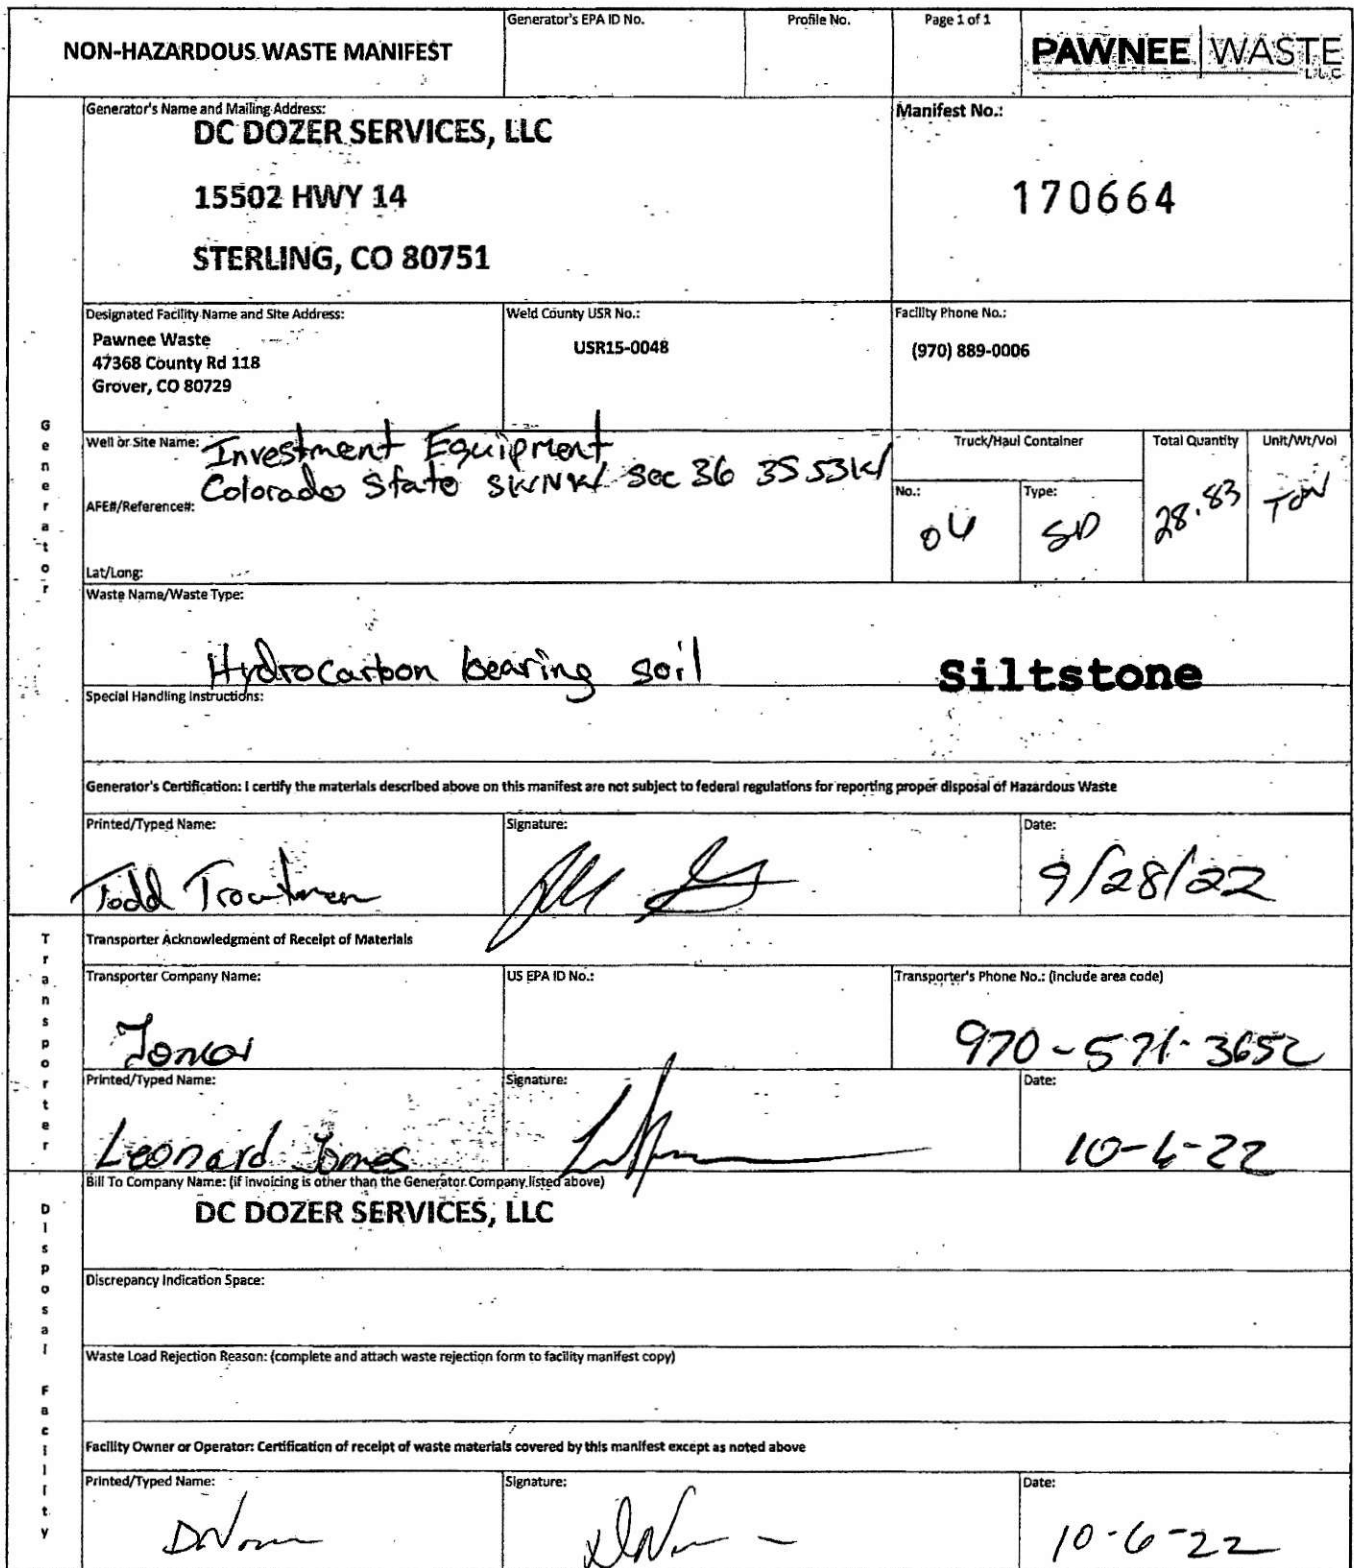 NON-HAZARDOUS WASTE MANIFEST
Generator's EPA ID No.
Profile No.
Page 1 of 1
PAWNEE WASTE LLC
Generator's Name and Mailing Address:
DC DOZER SERVICES, LLC
15502 HWY 14
STERLING, CO 80751
Manifest No.:
170664
Designated Facility Name and Site Address:
Pawnee Waste
47368 County Rd 118
Grover, CO 80729
Weld County USR No.:
USR15-0048
Facility Phone No.:
(970) 889-0006
Generator
Well or Site Name: Investment Equipment
Colorado State SWNW Sec 36 3S 53W
AFE#/Reference#:
Lat/Long:
Truck/Haul Container
No.:
04
Type:
SD
Total Quantity
28.83
Unit/Wt/Vol
TON
Waste Name/Waste Type:
Hydrocarbon bearing soil
Siltstone
Special Handling Instructions:
Generator's Certification: I certify the materials described above on this manifest are not subject to federal regulations for reporting proper disposal of Hazardous Waste
Printed/Typed Name:
Todd Troutman
Signature:
Date:
9/28/22
Transporter
Transporter Acknowledgment of Receipt of Materials
Transporter Company Name:
US EPA ID No.:
Transporter's Phone No.: (include area code)
970-571-3652
Printed/Typed Name:
Leonard Jones
Signature:
Date:
10-6-22
Disposal Facility
Bill To Company Name: (if invoicing is other than the Generator Company listed above)
DC DOZER SERVICES, LLC
Discrepancy Indication Space:
Waste Load Rejection Reason: (complete and attach waste rejection form to facility manifest copy)
Facility Owner or Operator: Certification of receipt of waste materials covered by this manifest except as noted above
Printed/Typed Name:
Signature:
Date:
10-6-22